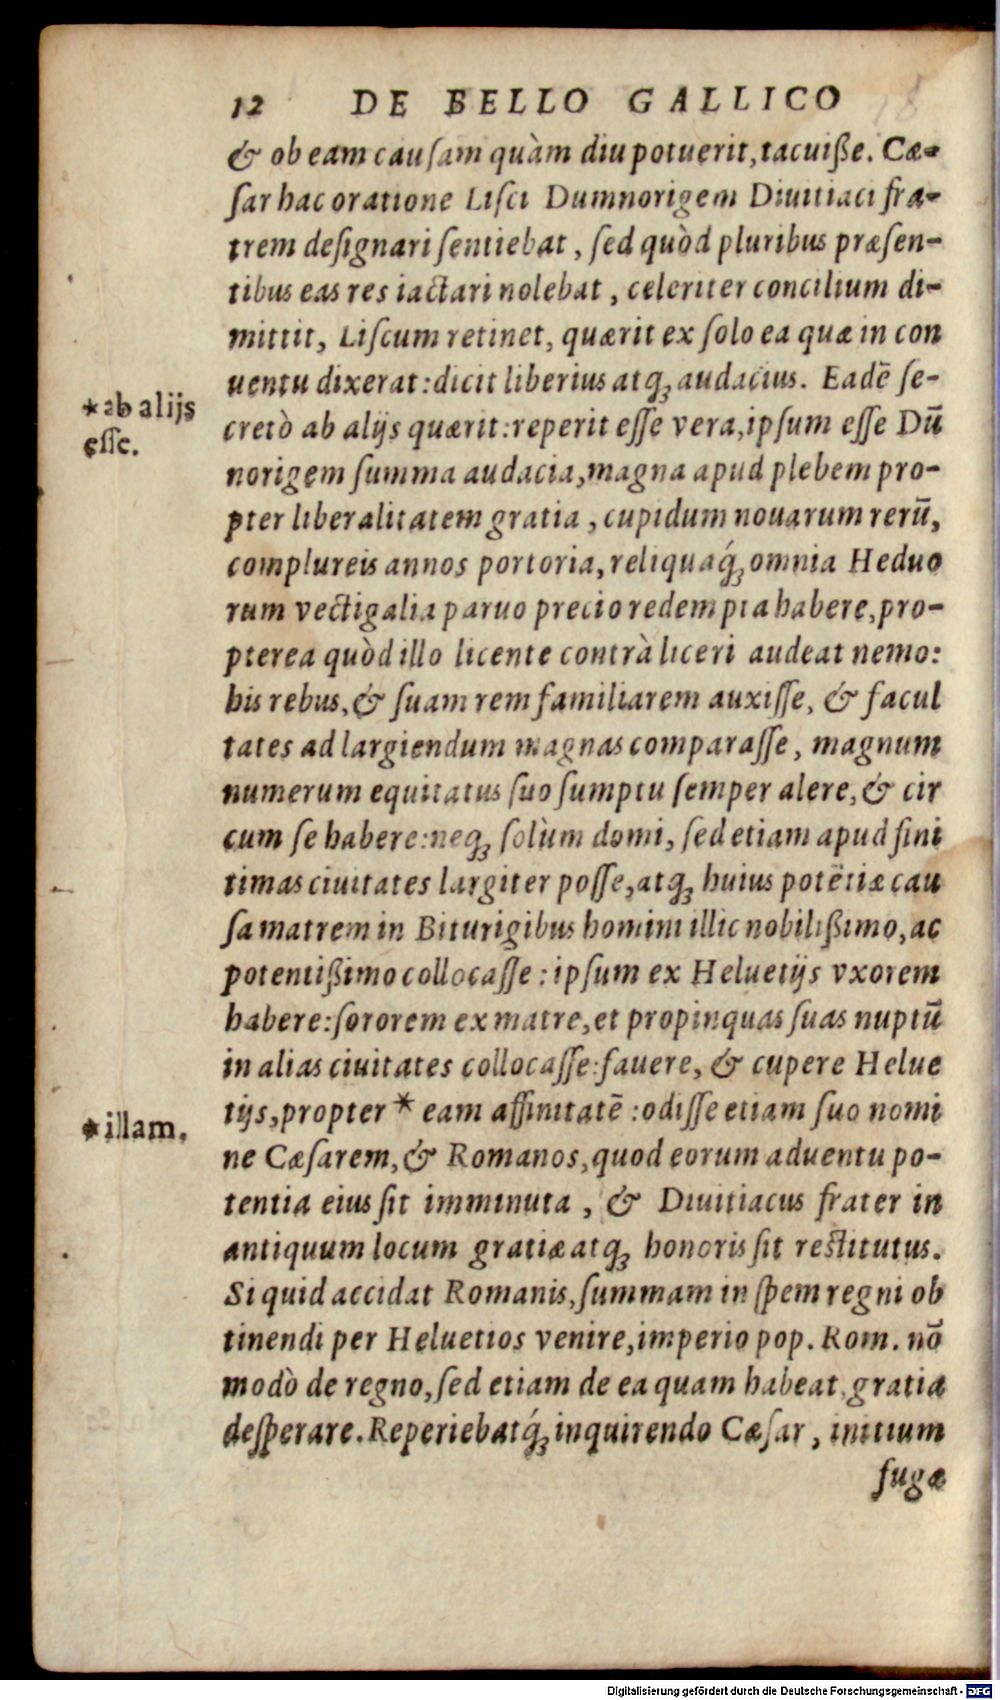 12 DE BELLO GALLICO
& ob eam cauſam quàm diu potuerit, tacuiße. Cæ-
ſar hac oratione Liſci Dumnorigem Diuitiaci fra-
trem deſignari ſentiebat, ſed quòd pluribus præſen-
tibus eas res iactari nolebat, celeriter concilium di-
mittit, Liſcum retinet, quærit ex ſolo ea quæ in con
uentu dixerat: dicit liberius atqꝫ audacius. Eadē ſe-
*ab alijs
eſſe.
cretò ab alijs quærit: reperit eſſe vera, ipſum eſſe Dū
norigem ſumma audacia, magna apud plebem pro-
pter liberalitatem gratia, cupidum nouarum rerū,
complureis annos portoria, reliquaq́ꝫ omnia Heduo
rum vectigalia paruo precio redempta habere, pro-
pterea quòd illo licente contrà liceri audeat nemo:
his rebus, & ſuam rem familiarem auxiſſe, & facul
tates ad largiendum magnas comparaſſe, magnum
numerum equitatus ſuo ſumptu ſemper alere, & cir
cum ſe habere: neqꝫ ſolùm domi, ſed etiam apud fini
timas ciuitates largiter poſſe, atqꝫ huius potētiæ cau
ſa matrem in Biturigibus homini illic nobilißimo, ac
potentißimo collocaſſe: ipſum ex Heluetijs vxorem
habere: ſororem ex matre, et propinquas ſuas nuptū
in alias ciuitates collocaſſe: fauere, & cupere Helue
tijs, propter * eam affinitatē: odiſſe etiam ſuo nomi
*illam.
ne Cæſarem, & Romanos, quod eorum aduentu po-
tentia eius ſit imminuta, & Diuitiacus frater in
antiquum locum gratiæ atqꝫ honoris ſit reſtitutus.
Si quid accidat Romanis, ſummam in ſpem regni ob
tinendi per Heluetios venire, imperio pop. Rom. nō
modò de regno, ſed etiam de ea quam habeat, gratia
deſperare. Reperiebatq́ꝫ inquirendo Cæſar, initium
fugæ
Digitalisierung gefördert durch die Deutsche Forschungsgemeinschaft - DFG